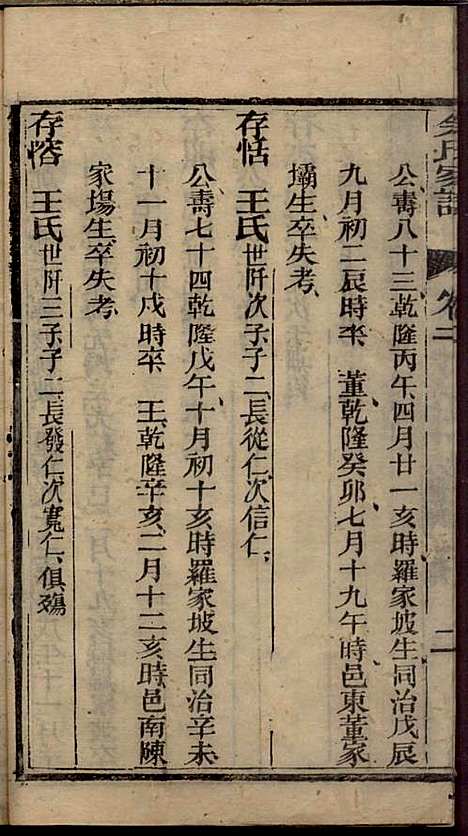 氏家譜 卷二 二
公壽八十三乾隆丙午四月廿一亥時羅家坡生同治戊辰
九月初二辰時卒 董乾隆癸卯七月十九午時邑東董家
壩生卒失考
存恬 王氏世阡次子子二長從仁次信仁
公壽七十四乾隆戊午十月初十亥時羅家坡生同治辛未
十一月初十戌時卒 王乾隆辛亥二月十二亥時邑南陳
家塲生卒失考
存愹 王氏世阡三子子二長發仁次寬仁俱殤